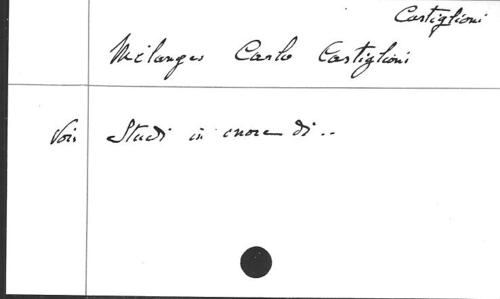 Castiglioni
Mélanges Carlo Castiglioni
Voir Studi in onore di ..